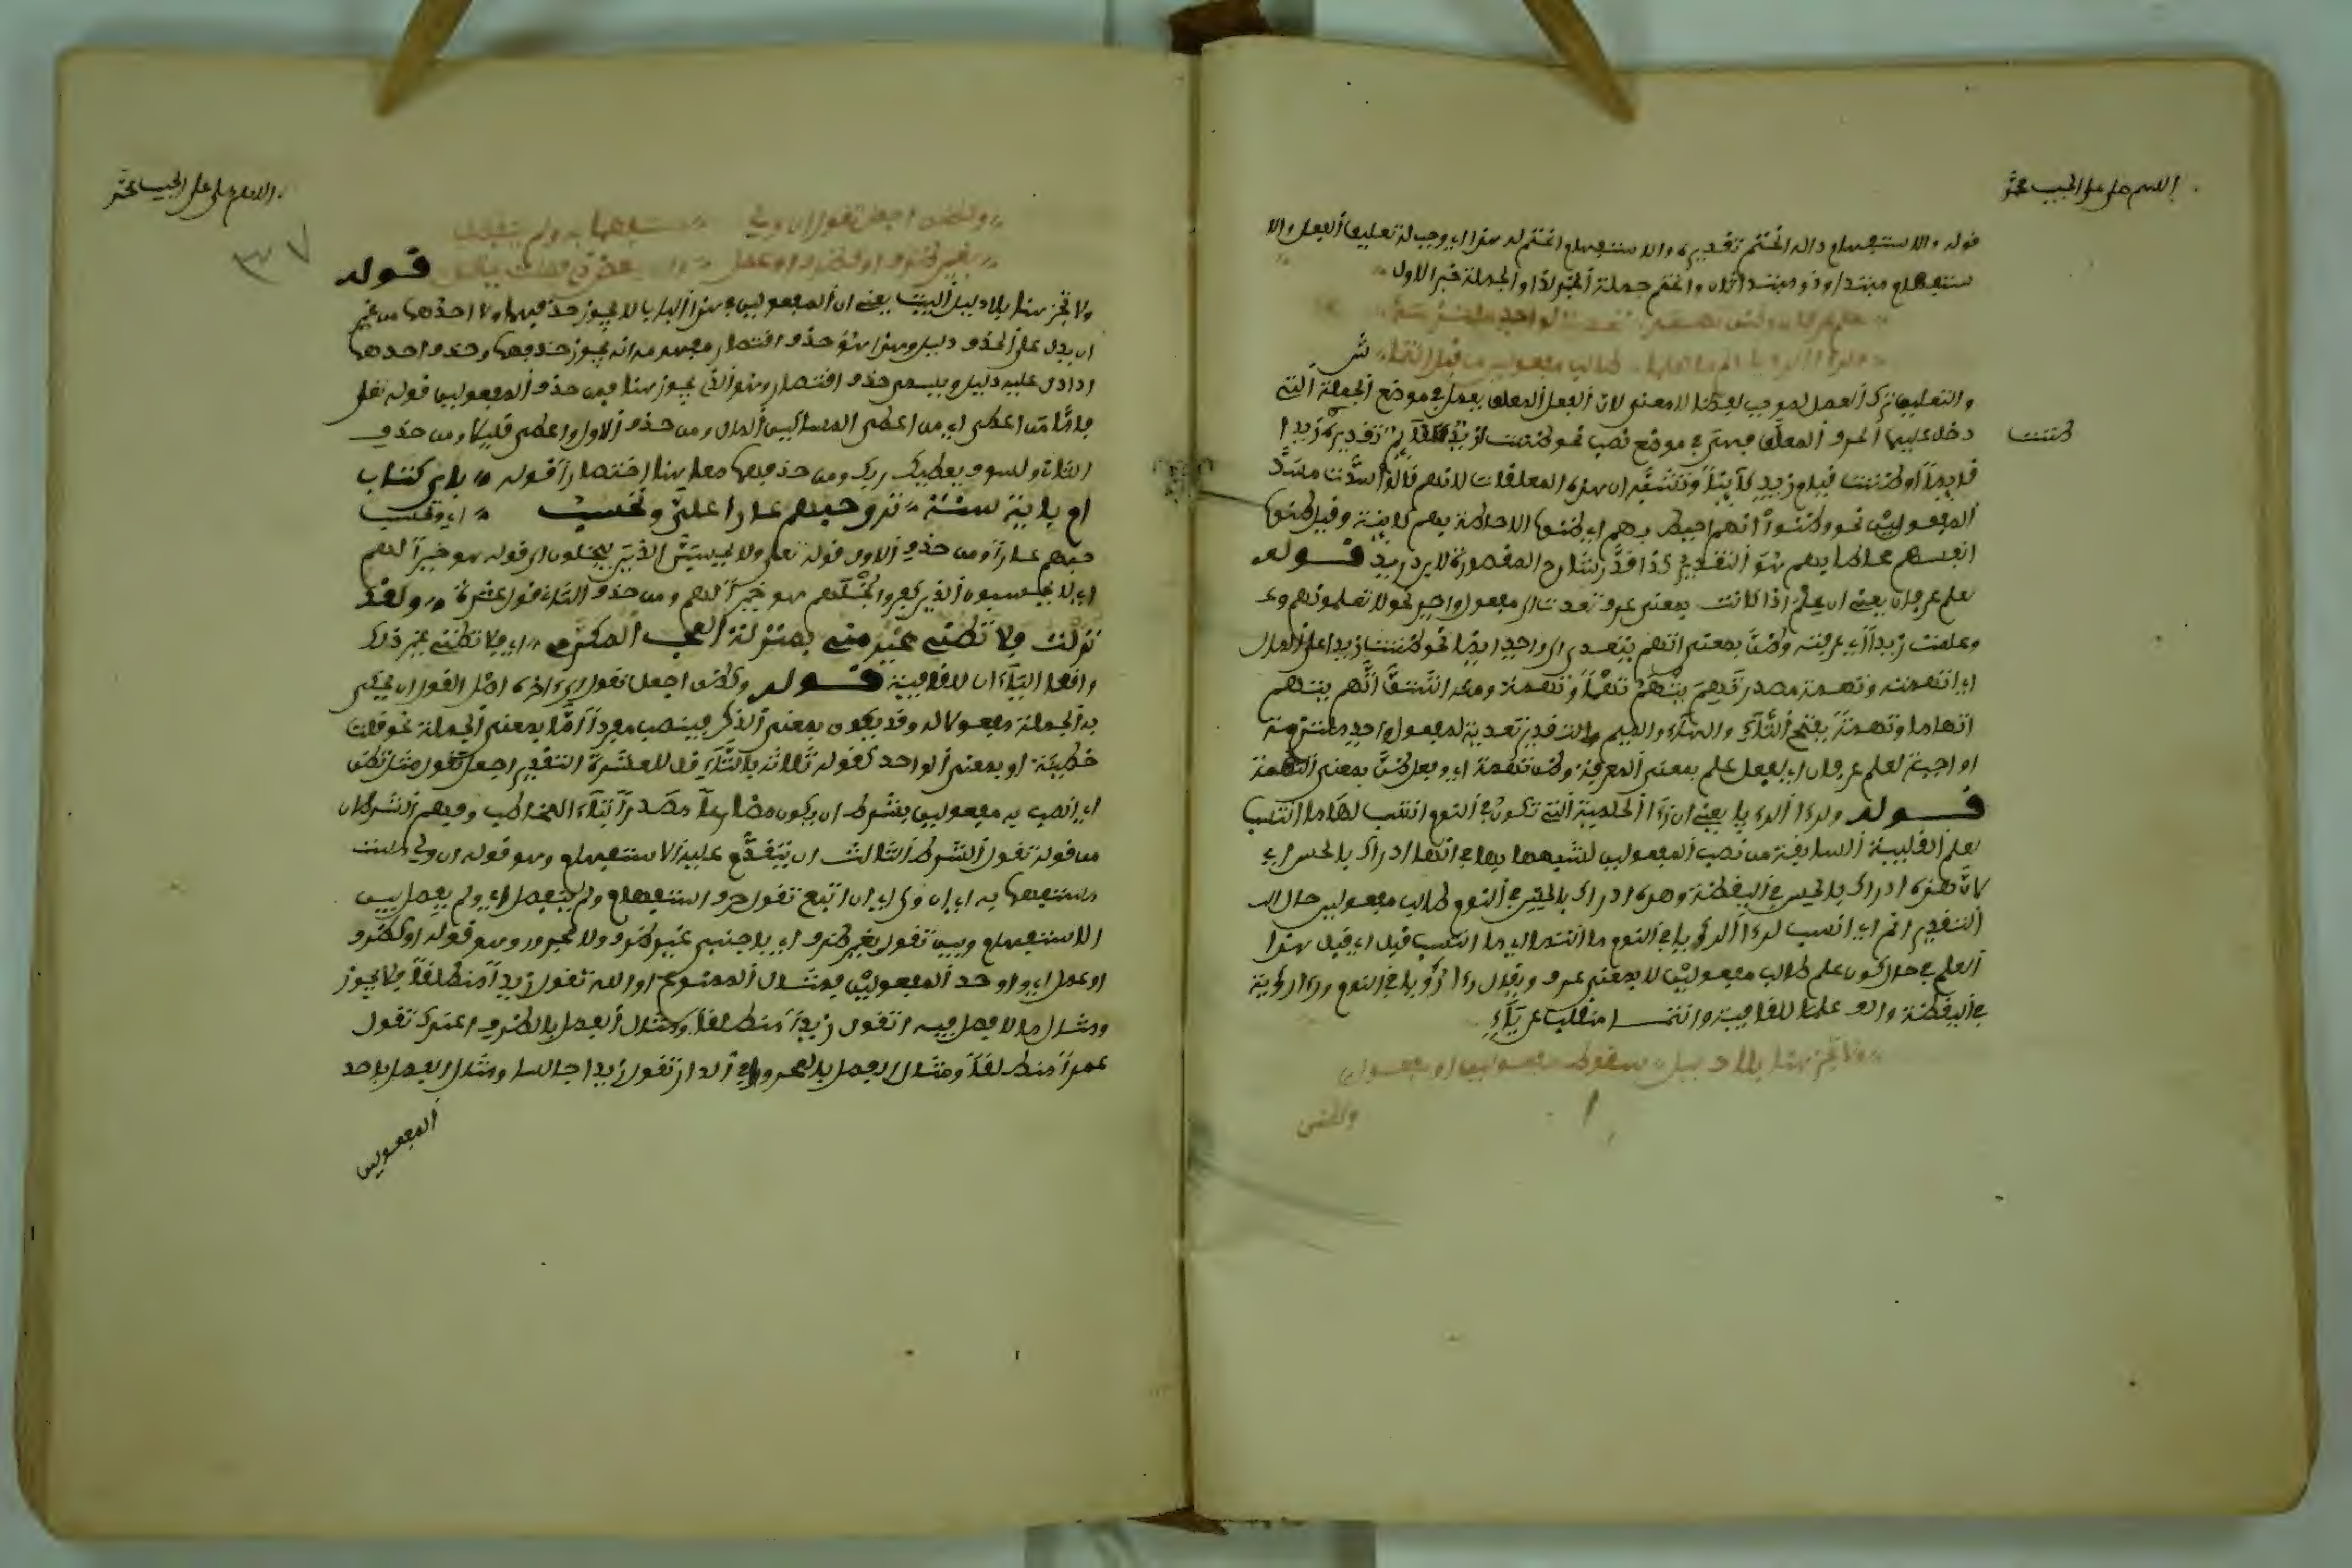 اللهم صل على الحبيب محمد
قوله والاستفهام ذا له انحتم تقديره والاستفهام انحتم له هذا اي وجب له تعليق الفعل والا
ستفهام مبتدا وذو مبتدا ثان وانحتم جملة الخبر لذا والجملة خبر الاول
لعلم عرفان وظن تهمه تعدية لواحد ملتزمه
ولرءا الرويا انم ما لعلما طالب مفعولين من قبل انتما ش
والتعليق ترك العمل لموجب لفظا لا معنى لان الفعل المعلق يعمل في موضع الجملة التي
دخل عليها الحرف المعلق فهي في موضع نصب نحو ظننت لزيد قايم تقديره زيدا
ظننت
قايما او ظننت قيام زيد كاينا وتنسب ان هذه المعلقات لانهم قالوا سدت مسد
المفعولين نحو وظنوا انهم احيط بهم اي ظنوا الاحاطة بهم كاينة وقيل ظنوا
انفسهم محاطا بهم هو التقدير كذا قدر شارح المقصورة لابن دريد قوله
لعلم عرفان يعني ان علم اذا كانت بمعنى عرف تعدت الى مفعول واحد نحو لا تعلمونهم
وعلمت زيدا اي عرفته وظن بمعنى اتهم يتعدى الى واحد ايضا نحو ظننت زيدا على المال
اي اتهمته وتهمة مصدر
اتهاما وتهمة بفتح التاء والهاء والميم والتقدير تعدية لمفعول واحد ملتزمة
او اجبة لعلم عرفان اي لفعل علم بمعنى المعرفة وظن تهمة اي وفعل ظن بمعنى التهمة
قوله ولرءا الرءيا يعني ان رءا الحلمية التي تكون في النوم انتسب لها ما انتسب
لعلم القلبية السابقة من نصب المفعولين لشبهها بها في انها ادراك بالحس اي
لان هذه ادراك بالحس في اليقظة وهذه ادراك بالحس في النوم طالب مفعولين حال
التقدير انم اي انسب لرءا الرءيا في النوم ما انتما اي ما انتسب قبل اي قبل هذا
لعلم في حال كون علم طالب مفعولين لا بمعنى عرف ويقال رءا رؤيا في النوم ورءا رؤية
في اليقظة والف علما للقافية وانتما منقلب عن ياء
ولا تجز هنا بلا دليل سقوط مفعولين او مفعول
وكتظن
اللهم صل على الحبيب محمد
٣٧
وكتظن اجعل تقول ان ولي مستفهما به ولم ينفصل
بغير ظرف او كظرف او عمل وان ببعض ذي فصلت يحتمل قوله
ولا تجز هنا بلا دليل البيت يعني ان المفعولين في هذا الباب لا يجوز حذفهما ولا احدهما من غير
ان يدل على الحذف دليل وهذا هو حذف اقتصار وفهم منه انه يجوز حذفهما وحذف احدهما
اذا دل عليه دليل ويسمى حذف اختصار وهو الذي يجوز هنا فمن حذف المفعولين قوله تعلى
فاما من اعطى اي من اعطى المساكين المال ومن حذف الاول واعطى قليلا ومن حذف
الثان ولسوف يعطيك ربك ومن حذفهما معا هنا اختصارا قوله باي كتاب
ام باية سنة ترى حبهم عارا علي وتحسب اي وتحسب
حبهم عارا ومن حذف الاول قوله تعلى ولا يحسبن الذين يبخلون الى قوله هو خيرا لهم
اي لا يحسبون الذين كفروا بخلهم هو خيرا لهم ومن حذف الثان قول عنترة ولقد
نزلت فلا تظني غيره مني بمنزلة المحب المكرم اي فلا تظني غير ذلك
واقعا
قوله وكتظن اجعل تقول الى ءاخره اصل القول ان يحكى
به الجملة مفعولا له وقد يكون بمعنى الذكر فينصب مفردا اما بمعنى الجملة نحو قلت
خطبة او بمعنى الواحد كقوله ثلاثة بالتاء قل للعشرة التقدير اجعل تقول مثل تظن
اي انصب به مفعولين بشرط ان يكون مضارعا مصدرا بتاء المخاطب وفهم الشرطان
من قوله تقول الشرط الثالث ان يتقدم عليه الاستفهام وهو قوله ان ولي
مستفهما به اي ان ولى اي ان اتبع تقول حرف استفهام ولم ينفصل اي ولم يفصل بين
الاستفهام وبين تقول بغير ظرف اي باجنبي غير ظرف ولا مجرور وهو قوله او كظرف
او عمل اي او احد المفعولين فمثال الممنوع اوالله تقول زيدا منطلقا فلا يجوز
ومثال ما لا فصل فيه اتقول زيدا منطلقا ومثال الفصل بالظرف اعندك تقول
عمرا منطلقا ومثال الفصل بالمجرور افي الدار تقول زيدا جالسا ومثال الفصل باحد
المفعولين